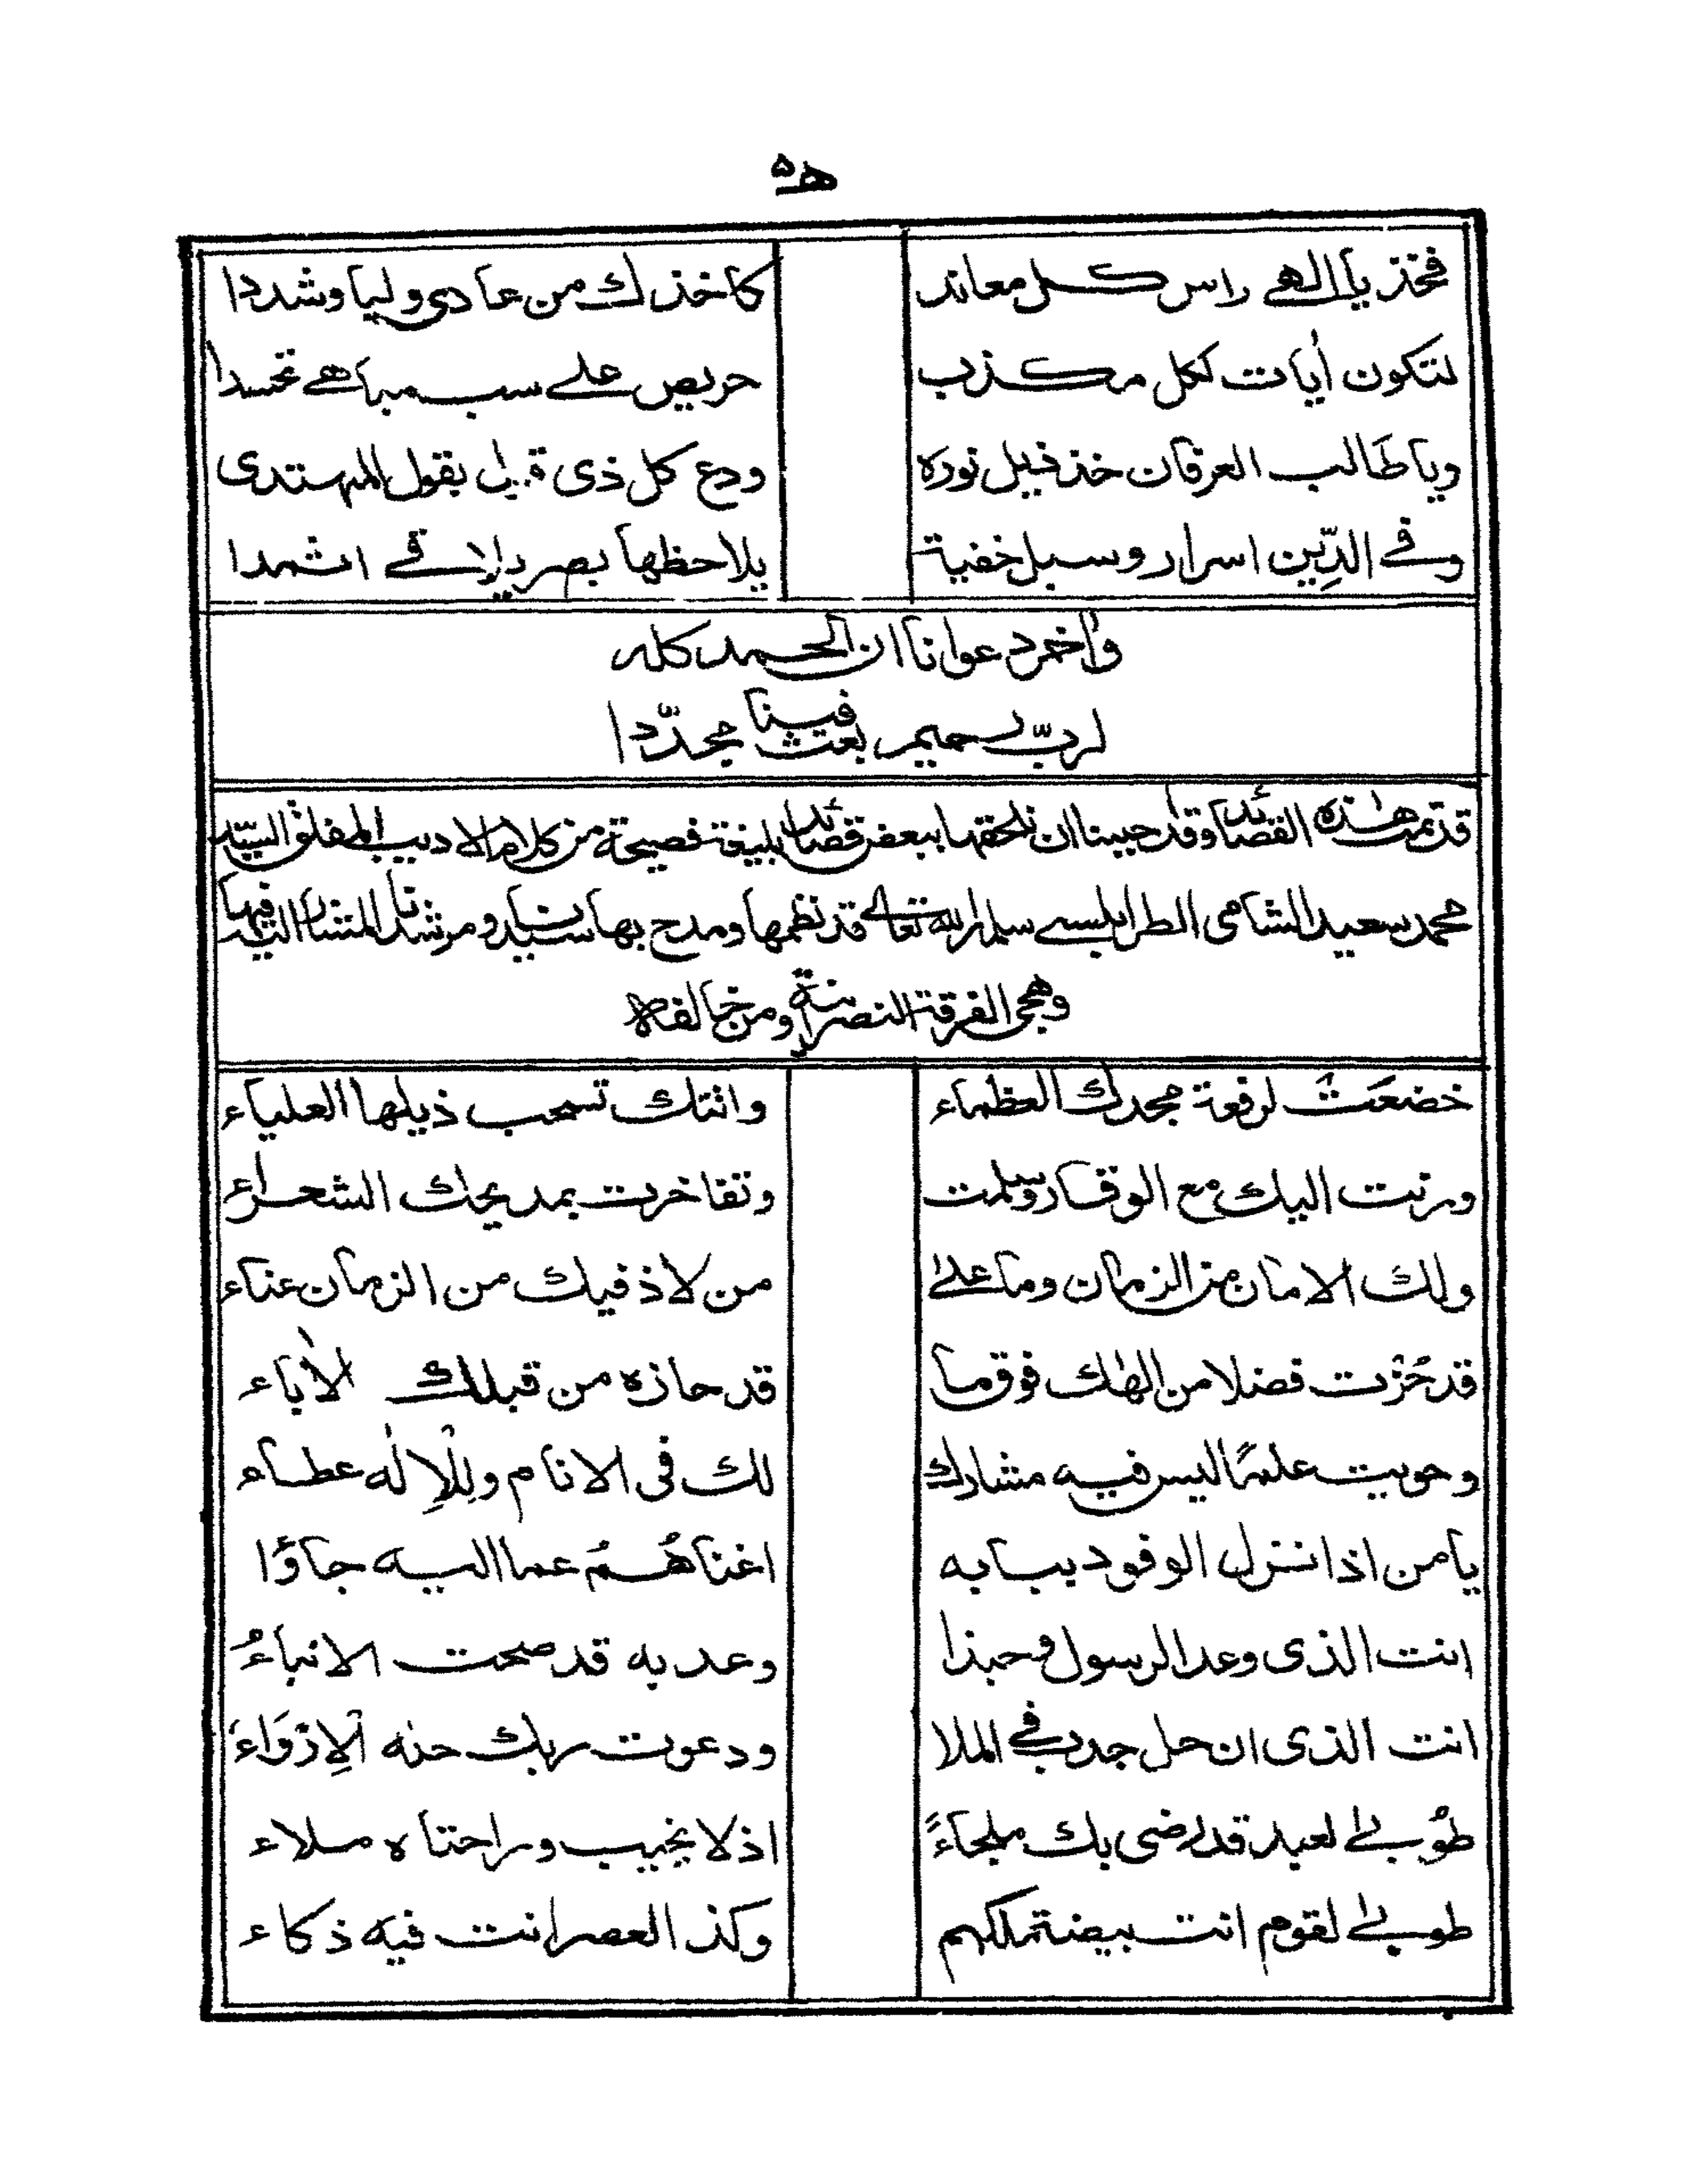 ۵۵
فخذ يا الهى راس كل معاند كاخذك من عادى وليا وشددا
لتكون أيات لكل مكذب حريص على سب مباهى تحسدا
ويا طالب العرفان خذ ذيل نوره ودع كل ذى قيل بقول المهتدى
وفى الدِّين اسرار وسبل خفية يلاحظها بصر يلاقى اثمدا
وأخر دعوانا ان الحمد كله
لربّ رحيم بعث فينا مجدّدا
قد تمت هذه القصائد وقد احببنا ان نلحقها ببعض قصائد بليغة فصيحة من كلام الاديب المفلق السيّد
محمد سعيد الشامى الطرابلسى سلمه الله تعالى قد نظمها ومدح بها سيدنا ومرشدنا المشار اليه فيها
وهجى الفرقة النصرانية ومن خالفه
خضعَت لرفعة مجدك العظماء واتتك تسحب ذيلها العلياء
ورنت اليك مع الوقار وسلمت وتفاخرت بمديحك الشعراء
ولك الامان من الزمان وما على من لاذ فيك من الزمان عناء
قد حُزْت فضلا من الهك فوق ما قد حازه من قبلك الأباء
وحويت علمًا ليس فيه مشارك لك فى الانام وللاِلٰه عطاء
يا من اذا نزل الوفود ببابه اغناهُمُ عما اليه جاؤا
انت الذى وعد الرسول وحبذا وعد به قد صحت الانباءُ
انت الذى ان حل جدب فى الملا ودعوت ربك حله الاِرْوَاء
طوُبى لعبد قد رضى بك ملجاءً اذ لا يخيب وراحتاه ملاء
طوبى لقوم انت بيضة ملكهم وكذا العصر انت فيه ذكاء